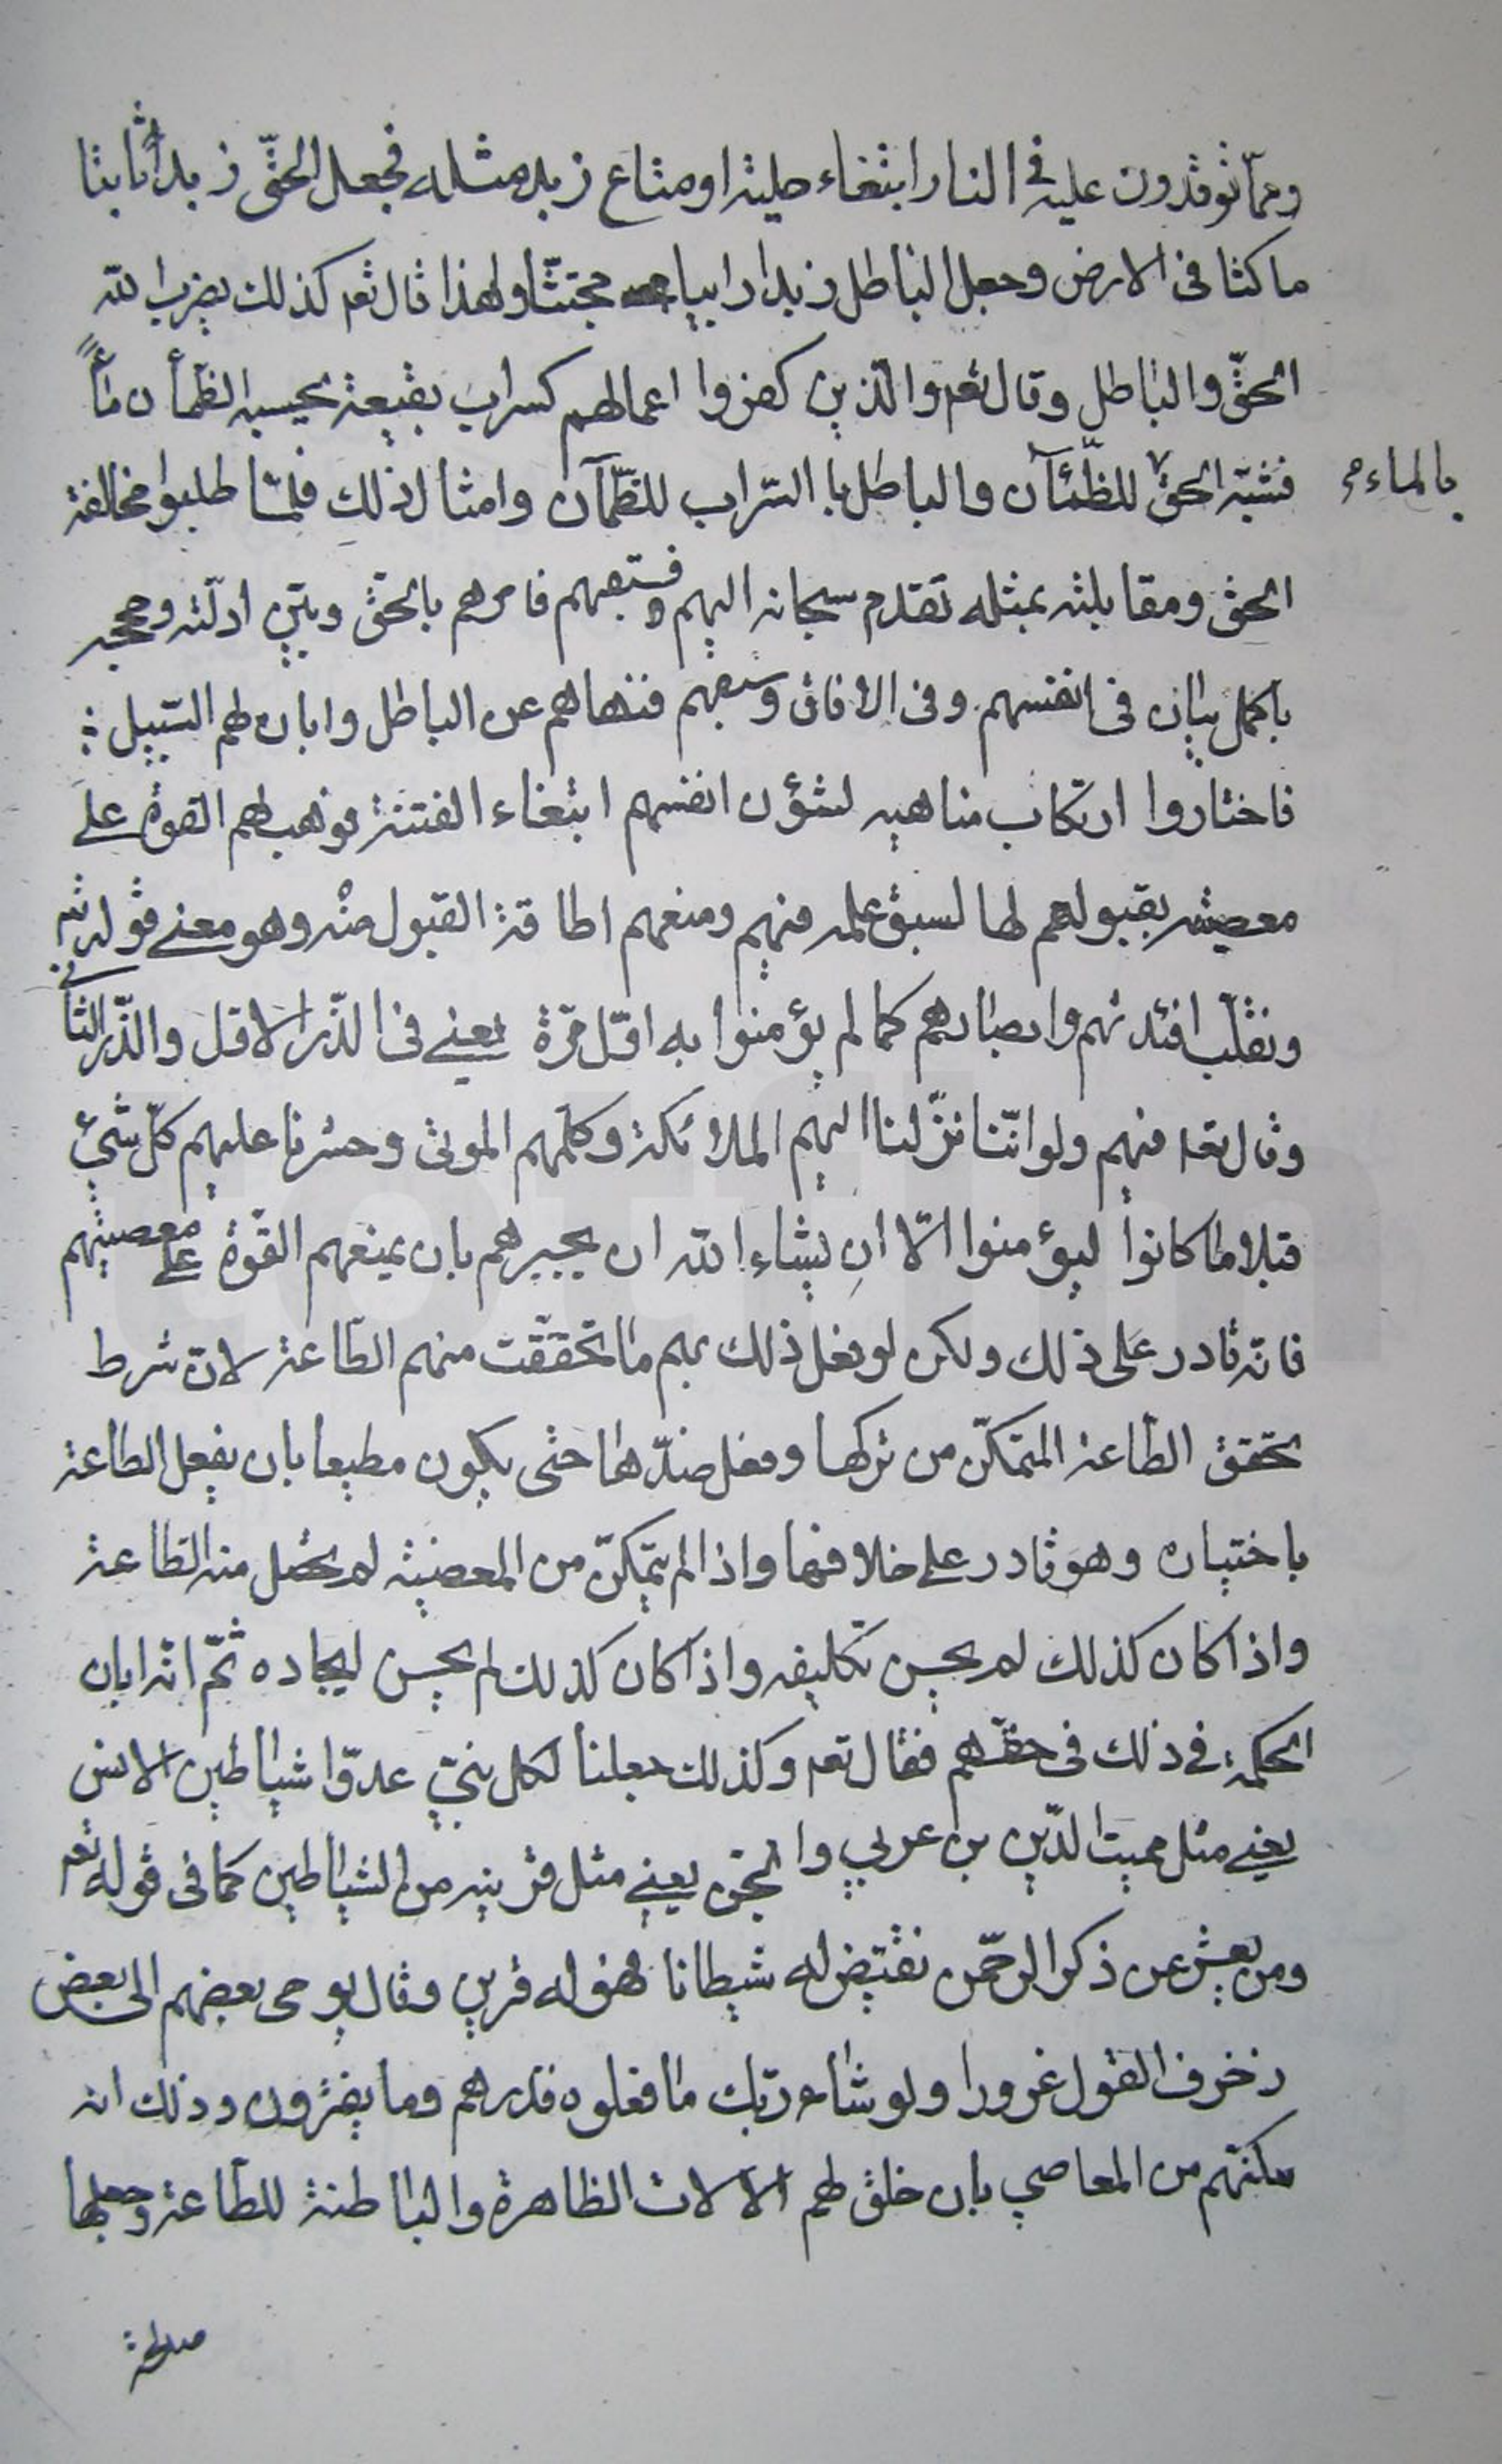 ومما توقدون عليه في النار ابتغاء حلية او متاع زبد مثله فجعل الحقّ زبداً ثابتا
ماكثا في الارض وجعل الباطل زبدا رابيا مجتثّا ولهذا قال تعم كذلك يضرب الله
الحقّ والباطل وقال تعم والّذين كفروا اعمالهم كسراب بقيعة يحسبه الظمأن ماءً
فشبّه الحقّ للظّمآن والباطل با السّراب للظّمآن وامثال ذلك فلمّا طلبوا مخالفة
بالماء
الحق ومقابلته بمثله تقدم سبحانه اليهم فامرهم بالحقّ وبيّن ادلّته وحججه
باكمل بيان في انفسهم وفي الافاق فنهاهم عن الباطل وابان لهم السّبيل
فاختاروا ارتكاب مناهيه لشؤن انفسهم ابتغاء الفتنة فوهب لهم القوة على
معصيته بقبولهم لها لسبق علمه فيهم ومنعهم اطاقة القبول منه وهو معنى قوله تعم
ونقلّب افئدتهم وابصارهم كما لم يؤمنوا به اوّل مرّة يعني في الذّر الاول والذّر الثاني
وقال تعا فيهم ولو انّنا نزّلنا اليهم الملائكة وكلّمهم الموتى وحشرنا عليهم كلّ شيئ
قبلا ما كانوا ليؤمنوا الّا ان يشاء الله ان يجبرهم بان يمنعهم القوّة على معصيتهم
فانه قادر على ذلك ولكن لو فعل ذلك بهم ما تحقّقت منهم الطّاعة لانّ شرط
تحقق الطّاعة المتمكّن من تركها وفعل ضدّها حتى يكون مطيعا بان يفعل الطاعة
باختياره وهو قادر على خلافها واذا لم يتمكّن من المعصية لم تحصل منه الطاعة
واذا كان كذلك لم يحسن تكليفه واذا كان كذلك لم يحسن ايجاده ثمّ انه ابان
الحكمة في ذلك في حقّهم فقال تعم وكذلك جعلنا لكل نبيّ عدوّا شياطين الانس
يعني مثل مميت الدّين بن عربي والجنّ يعني مثل قرينه من الشياطين كما في قوله تعم
ومن يعش عن ذكر الرحمّن نقيّض له شيطانا فهو له قرين وقال يوحى بعضهم الى بعض
زخرف القول غرورا ولو شاء ربّك ما فعلوه فذرهم وما يفترون وذلك انه
مكنهم من المعاصي بان خلق لهم الآلات الظاهرة والباطنة للطّاعة وجعلها